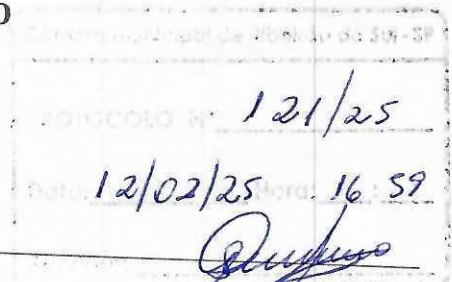 O
Câmara Municipal de Ribeirão do Sul - SP
PROTOCOLO Nº 121/25
Data: 12/02/25 Hora: 16:59